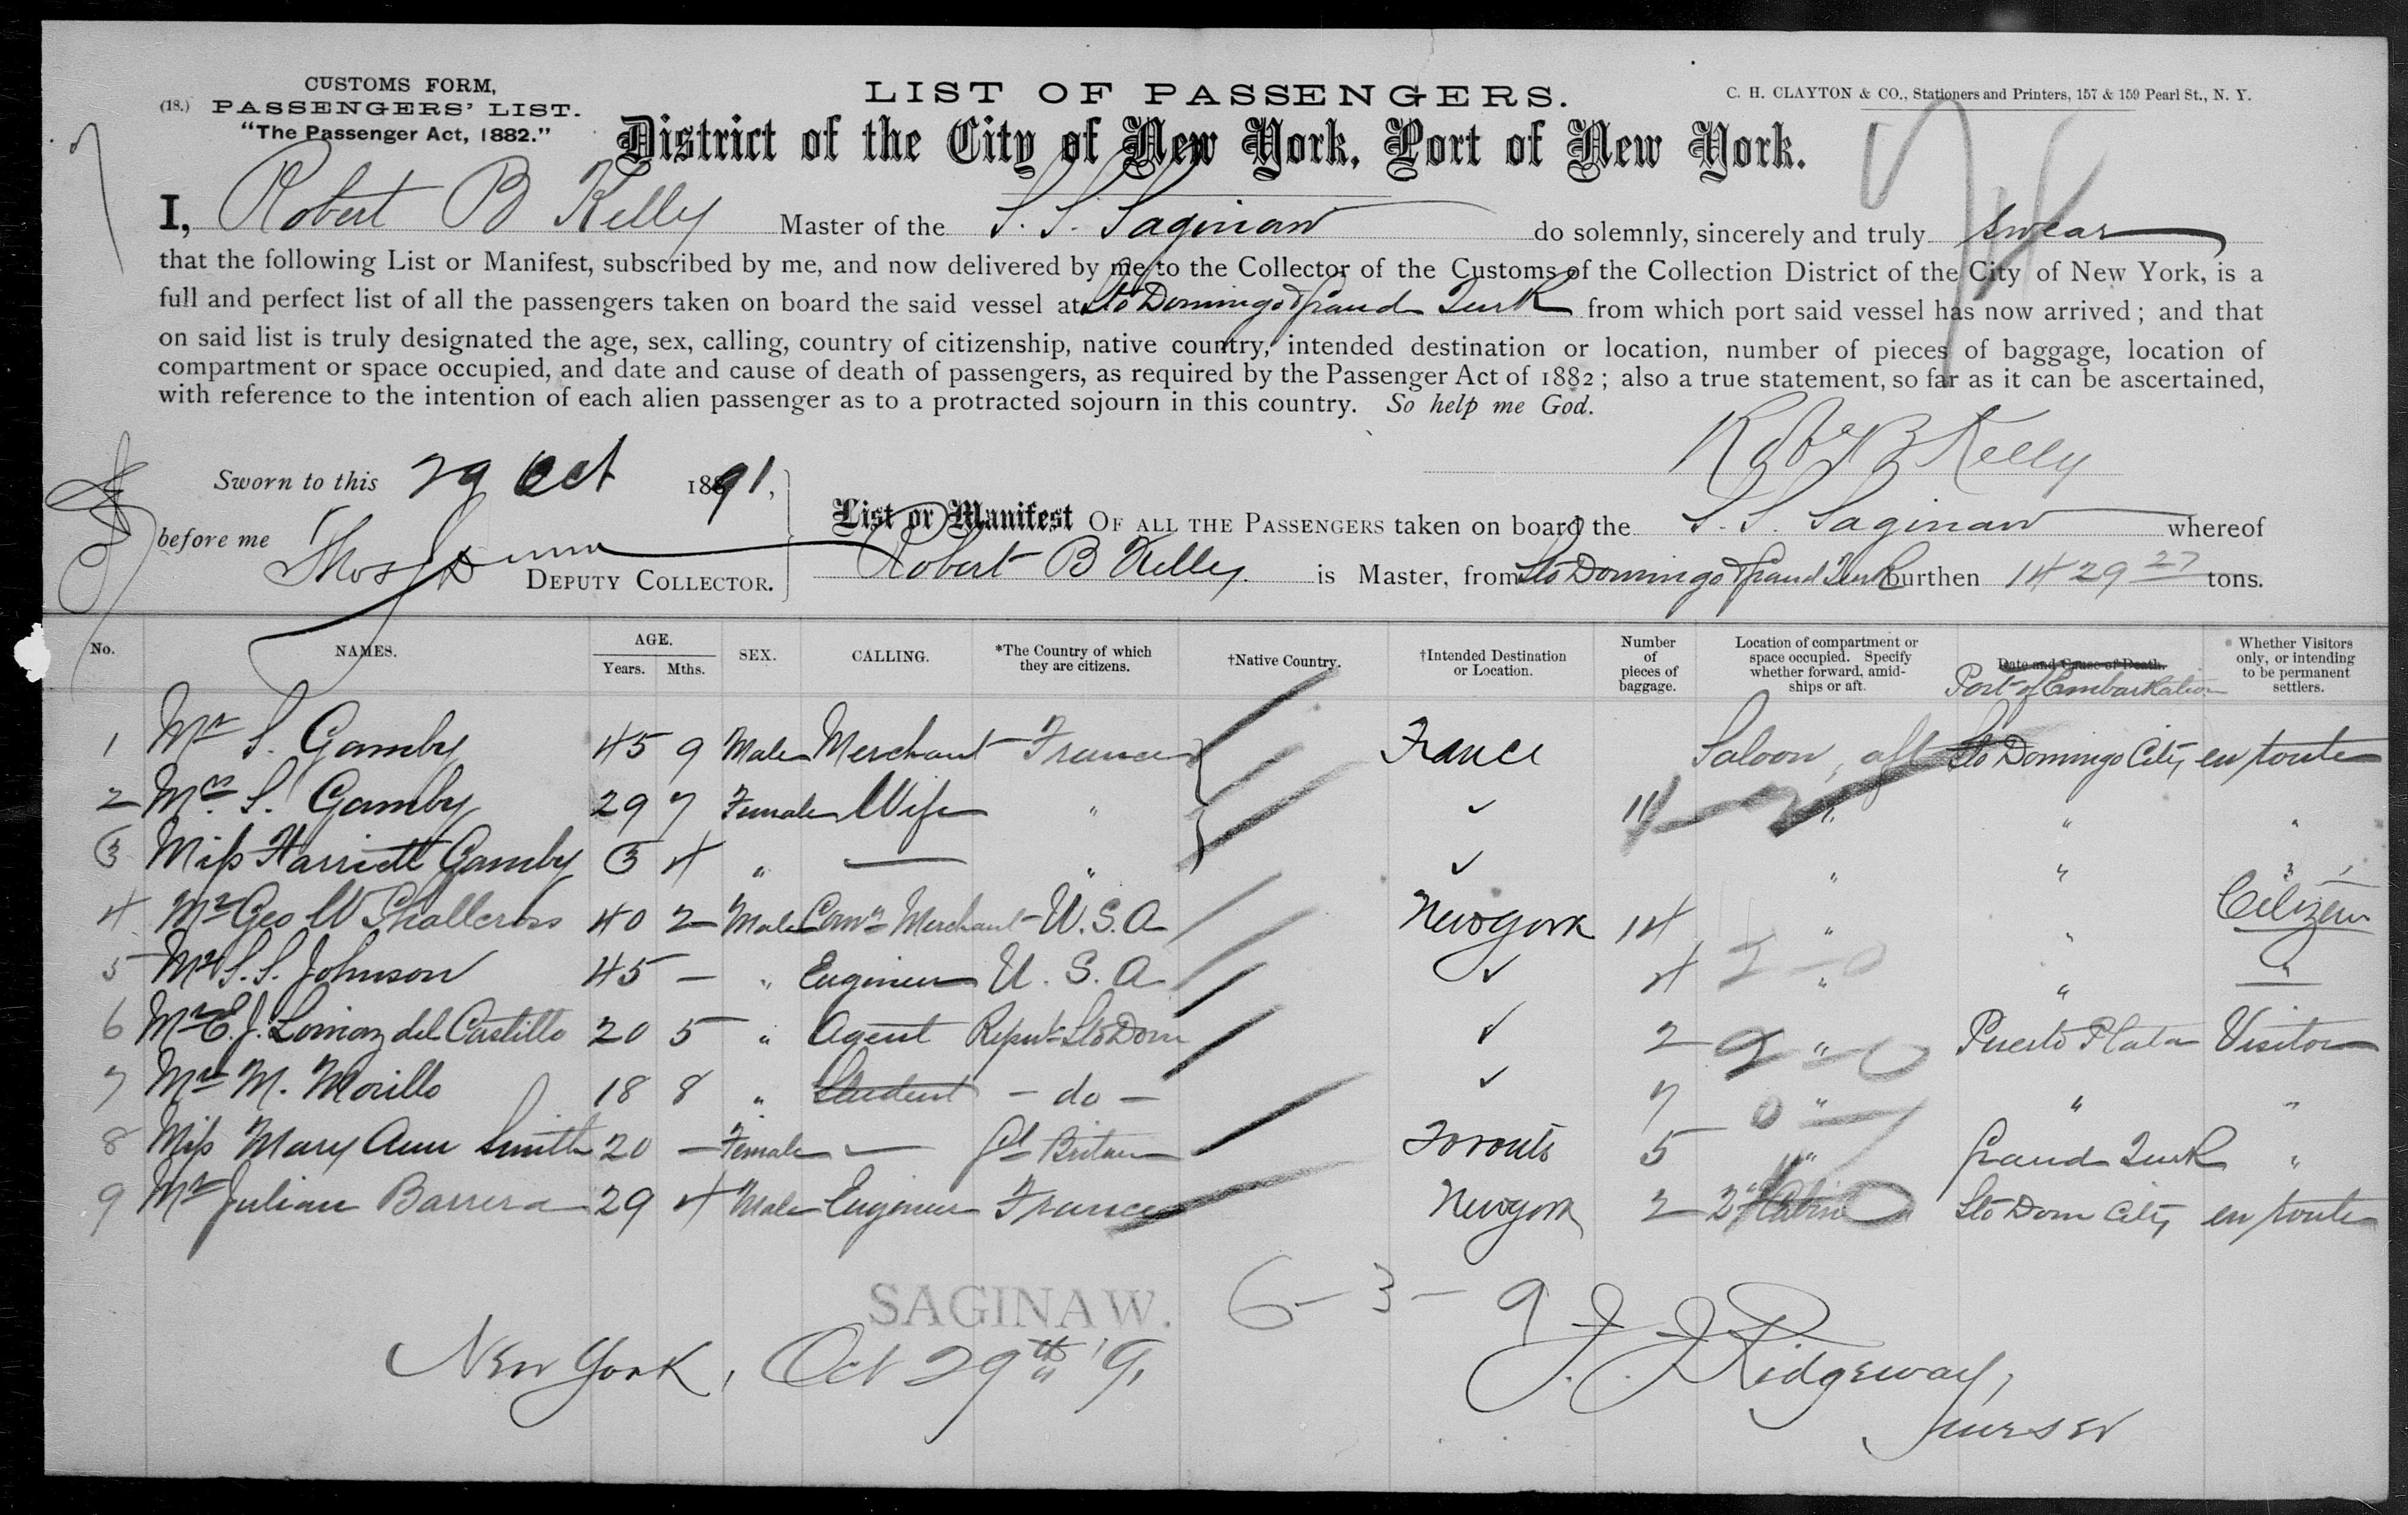 CUSTOMS FORM,
(18.) PASSENGERS' LIST.
"The Passenger Act, 1882."
LIST OF PASSENGERS.
C. H. CLAYTON & CO., Stationers and Printers, 157 & 159 Pearl St., N. Y.
District of the City of New York, Port of New York.
I, Robert B Kelly Master of the S. S. Saginaw do solemnly, sincerely and truly swear
that the following List or Manifest, subscribed by me, and now delivered by me to the Collector of the Customs of the Collection District of the City of New York, is a
full and perfect list of all the passengers taken on board the said vessel at Sto Domingo & Grand Turk from which port said vessel has now arrived; and that
on said list is truly designated the age, sex, calling, country of citizenship, native country, intended destination or location, number of pieces of baggage, location of
compartment or space occupied, and date and cause of death of passengers, as required by the Passenger Act of 1882; also a true statement, so far as it can be ascertained,
with reference to the intention of each alien passenger as to a protracted sojourn in this country. So help me God.
Robt B Kelly
Sworn to this 29 Oct 1891,
before me Thos DEPUTY COLLECTOR.
List or Manifest OF ALL THE PASSENGERS taken on board the S. S. Saginaw whereof
Robert B Kelly is Master, from Sto Domingo & Grand Turk burthen 1429 27 tons.
No. NAMES. AGE. Years. Mths. SEX. CALLING. *The Country of which they are citizens. †Native Country. †Intended Destination or Location. Number of pieces of baggage. Location of compartment or space occupied. Specify whether forward, amidships or aft. Date and Cause of Death. Port of Embarkation Whether Visitors only, or intending to be permanent settlers.
1 Mr S. Gamby 45 9 Male Merchant France France Saloon, aft Sto Domingo City en route
2 Mrs S. Gamby 29 7 Female Wife " ✓ 11 " " "
3 Miss Harriett Gamby 3 4 " — " ✓ " " "
4 Mr Geo W Shallcross 40 2 Male Comn Merchant U.S.A New York 14 " " Citizen
5 Mr S. S. Johnson 45 — " Engineer U.S.A ✓ 4 " " "
6 Mr E. J. del Castillo 20 5 " Agent Repub Sto Dom ✓ 2 " Puerto Plata Visitor
7 Mr M. Morillo 18 8 " Student - do - ✓ 7 " " "
8 Miss Mary Ann Smith 20 — Female — Gt Britain Toronto 5 " Grand Turk "
9 Mr Julian Barrera 29 4 Male Engineer France New York 2 2nd Cabin Sto Dom City en route
SAGINAW.
6 - 3 - 9
New York, Oct 29th '91
J. J. Ridgeway,
Purser